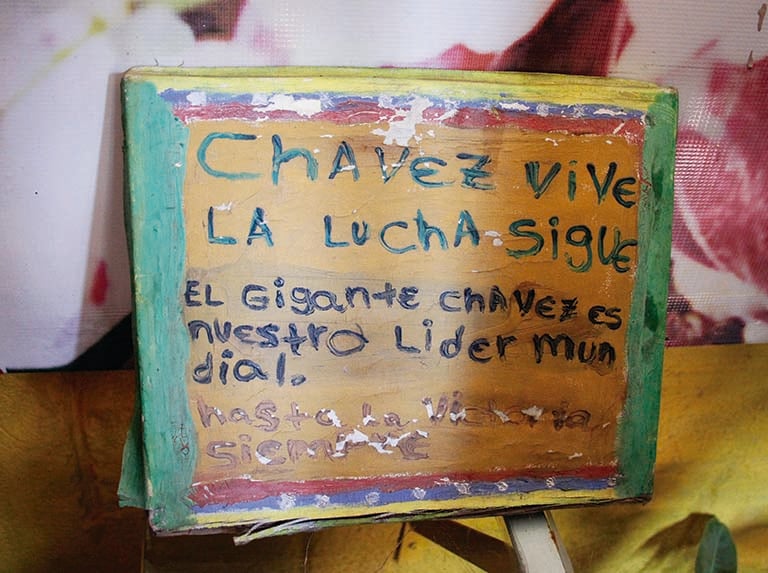 ChAVEZ ViVE
LA LuchA. SiguE
EL gigante chAVEZ es
nuestro Lider mun
dial.
hasta La Victoria
siempre